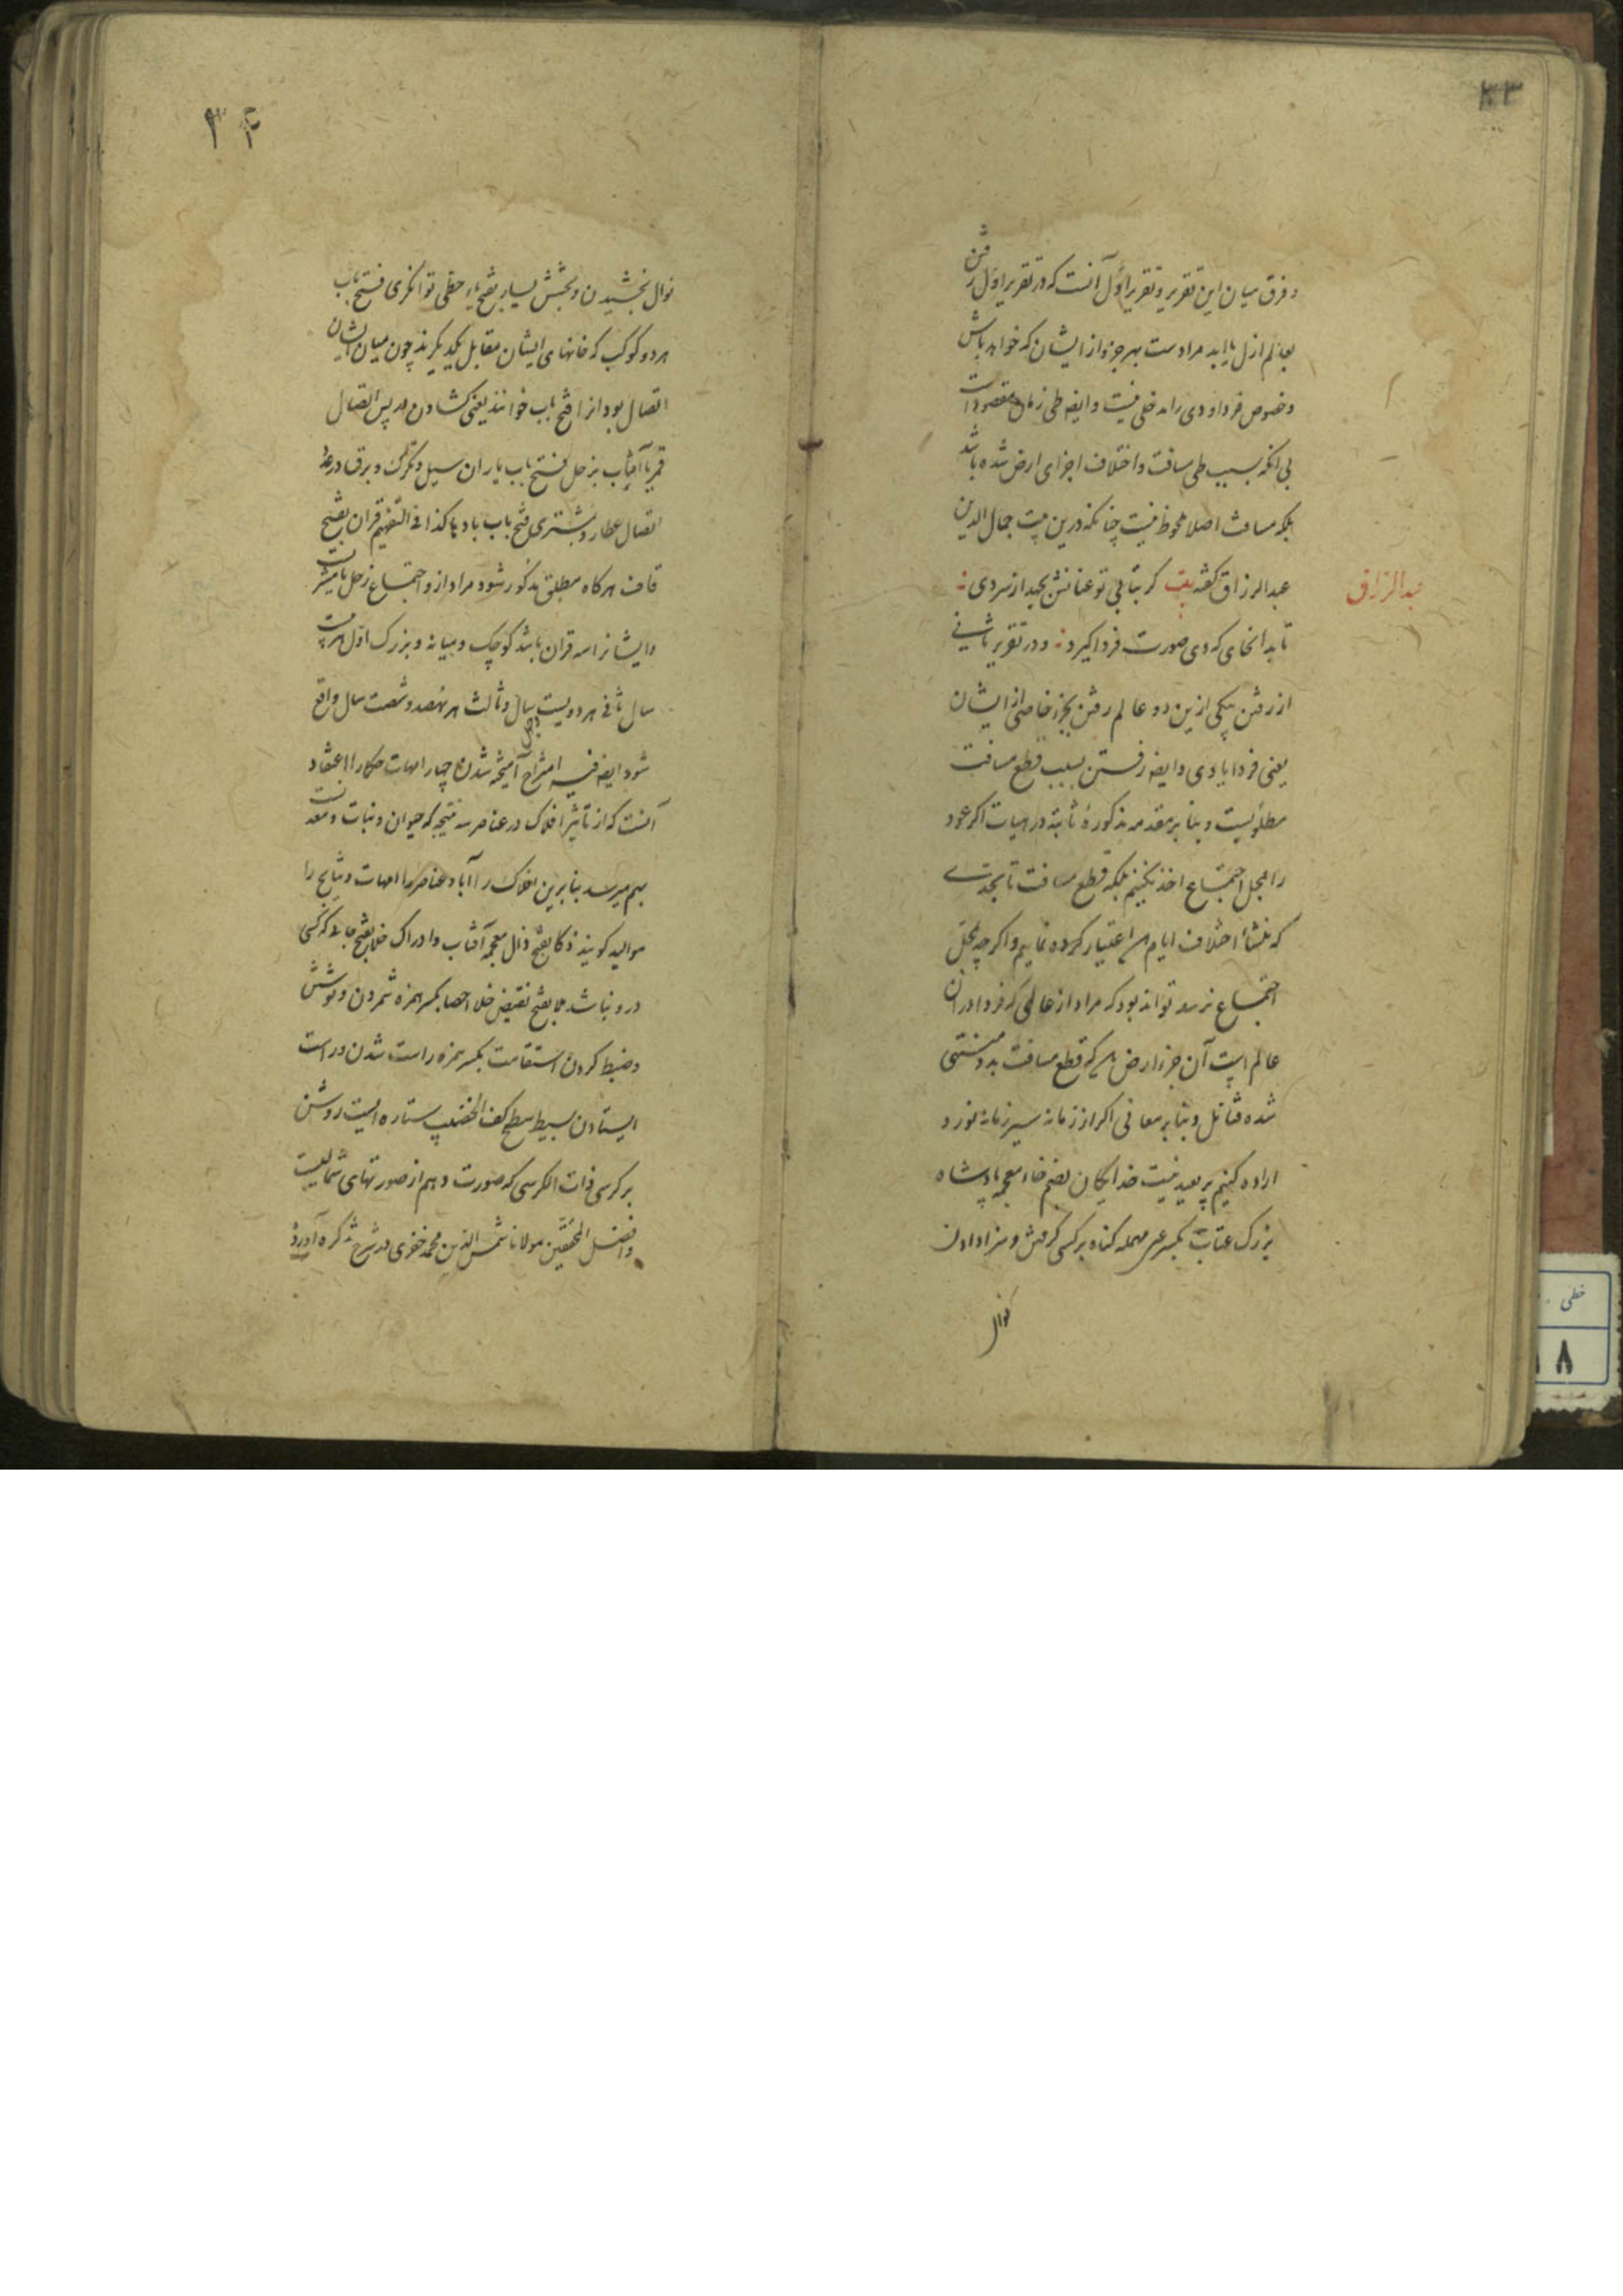 ۳۳
و فرق میان این تقریر و تقریر اول آنست که در تقریر اول رفتن
بعالم ازل یا ابد مرادست بهر جزو از ایشان که خواه باش
و خصوص فردا و دی را مدخلی نیست و ایضا طی زمان مقصود است
بی انکه بسبب طی مسافت و اختلاف اجزای ارض شده باشد
بلکه مسافت اصلا ملحوظ نیست چنانکه درین بیت جمال الدین
عبدالرزاق
عبد الرزاق گفته بیت گر بتابی تو عنانش بجهد از سر دی
تا بدانجای که دی صورت فردا گیرد و در تقریر ثانی
از رفتن بیکی ازین دو عالم رفتن بجزء خاصی از ایشان
یعنی فردا یا دی و ایضا رفتن بسبب قطع مسافت
مطلوبست و بنا بر مقدمه مذکوره ثابته در هیات اگر عود
را بمحل اجتماع اخذ نکنیم بلکه قطع مسافت تا بحدی
که منشأ اختلاف ایام اعتبار کرده نماییم و اگر چه بمحل
اجتماع نرسد تواند بود که مراد از عالمی که فردا در ان
عالم است آن جزء ارض که قطع مسافت بدو منتهی
شده فتأمل و بنا بر معانی اگر از زمانه سیر زمانه نورد
اراده کنیم پر بعید نیست خدایگان بضم خاء معجمه پادشاه
بزرگ عتاب بکسر عین مهمله گناه بر کسی گرفتن و سزا دادن
نوال
۳۴
نوال بخشیدن و بخشش یسار بفتح یاء حطی توانگری فتح باب
هر دو کوکب که خانهای ایشان مقابل یکدیگرند چون میان ایشان
اتصال بود انرا فتح باب خوانند یعنی کشادن در پس اتصال
قمر یا آفتاب بزحل فتح باب باران سیل و تگرگ و برق و رعد
اتصال عطارد بمشتری فتح باب بادها کذا فی التفهیم قران بفتح
قاف هرگاه مطلق مذکور شود مراد ازو اجتماع زحل با مشتریست
و ایشانرا سه قران باشد کوچک و میانه و بزرگ اول هر بیست
سال ثانی هر دویست سال و ثالث هر نهصد و شصت سال واقع
شود ایضا فیه امتزاج آمیخته شدن چهار امهات حکما را اعتقاد
آنست که از تاثیر افلاک در عناصر سه نتیجه که حیوان و نبات و معدنست
بهم میرسد بنابرین افلاک را آباء و عناصر را امهات و نتایج را
موالید گویند ذکا بفتح ذال معجمه آفتاب و ادراک خلا بفتح جائی که کسی
درو نباشد ملا بفتح نقیض خلا احصا بکسر همزه شمردن و نوشتن
و ضبط کردن استقامت بکسر همزه راست شدن و راست
ایستادن بسیط سطح کف الخضیب ستاره ایست روشن
بر کرسی ذات الکرسی که صورت دهم از صورتهای شمالیست
و افضل المحققین مولانا شمس الدین محمد خفری در شرح تذکره آورده
خطی
۸